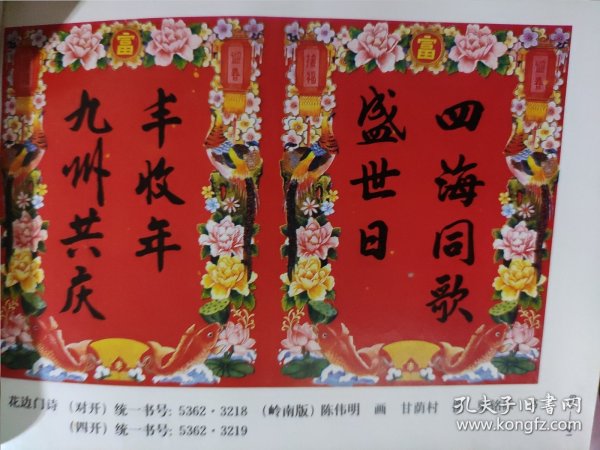 富
富
四海同歌
盛世日
九州共庆
丰收年
花边门诗 (对开) 统一书号: 5362·3218 (岭南版) 陈伟明 画 甘荫村
(四开) 统一书号: 5362·3219
孔夫子旧书网
www.kongfz.com